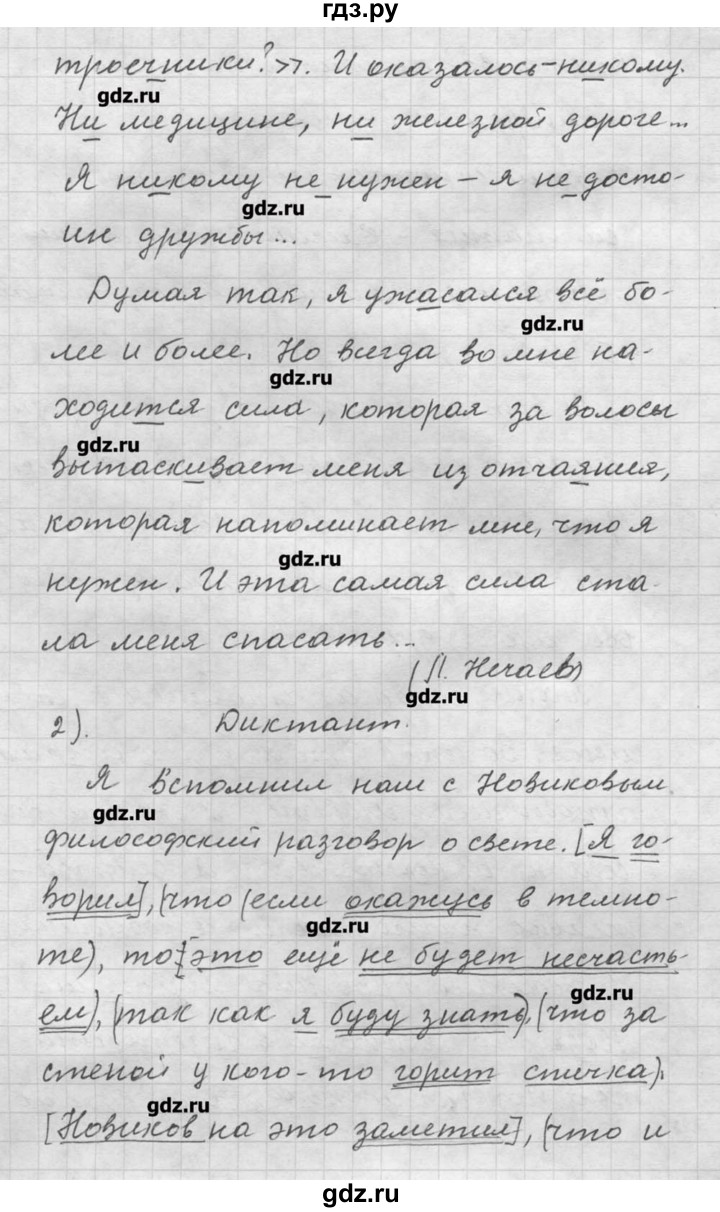 гдз.ру
троечники?». И оказалось-никому.
gdz.ru
Ни медицине, ни железной дороге...
Я никому не нужен – я не досто-
gdz.ru
ин дружбы...
Думая так, я ужасался всё бо-
gdz.ru
лее и более. Но всегда во мне на-
gdz.ru
ходится сила, которая за волосы
gdz.ru
вытаскивает меня из отчаяния,
которая напоминает мне, что я
gdz.ru
нужен. И эта самая сила ста-
ла меня спасать...
(П. Нечаев)
gdz.ru
2). Диктант.
Я вспомнил наш с Новиковым
gdz.ru
философский разговор о свете. [Я го-
ворил], (что (если окажусь в темно-
gdz.ru
те), то [это ещё не будет несчасть-
gdz.ru
ем), (так как я буду знать), (что за
стеной у кого-то горит спичка).
gdz.ru
[Новиков на это заметил], (что и
gdz.ru